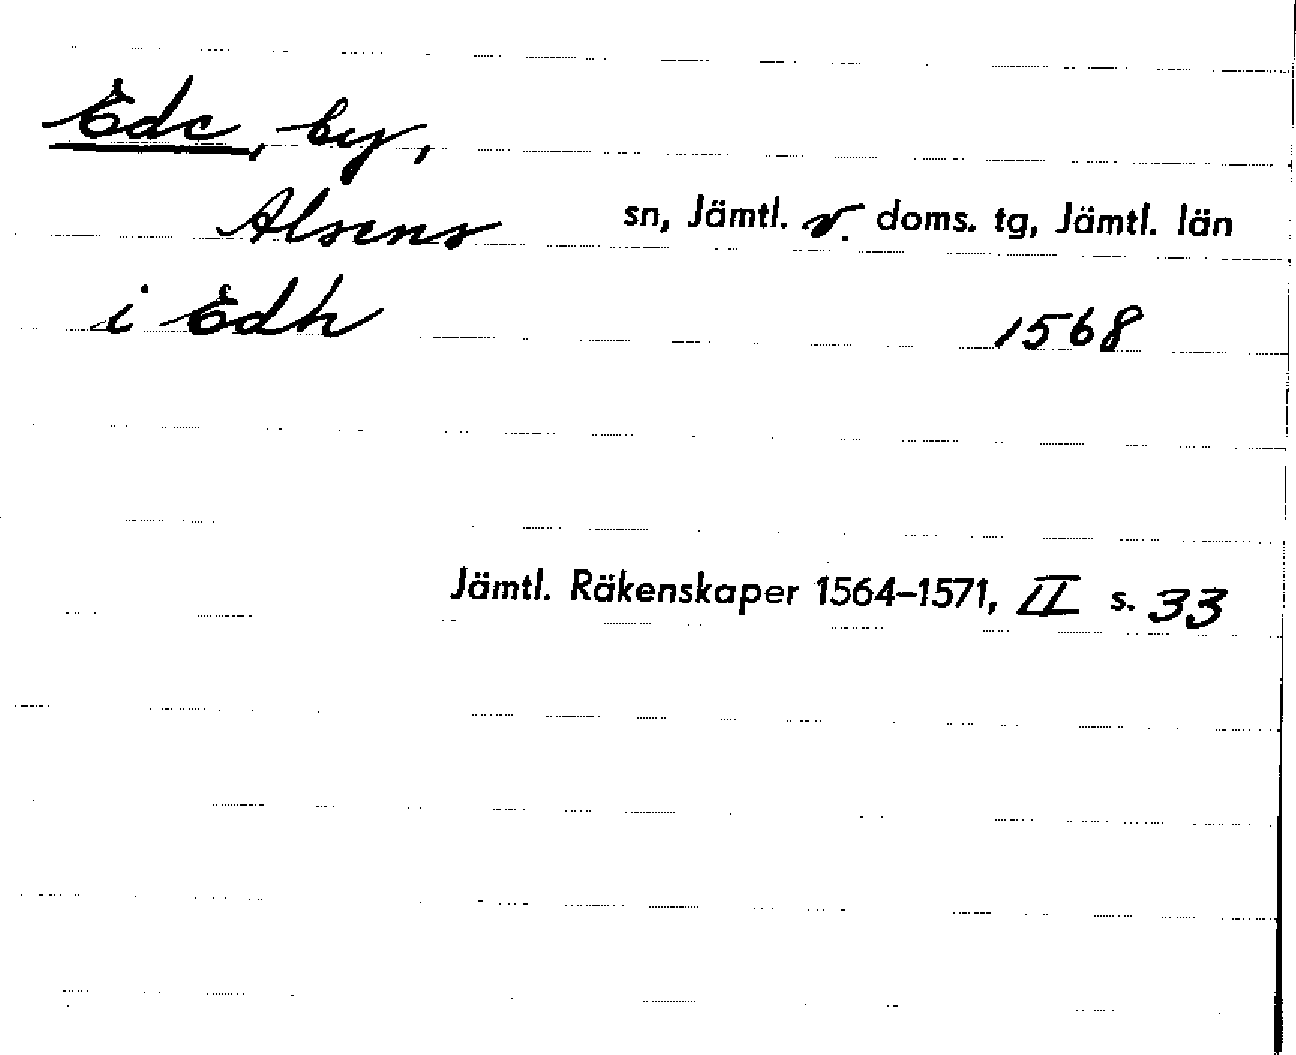 Ede, by,
Alsens sn, Jämtl. v. doms. tg, Jämtl. län
i Edh 1568
Jämtl. Räkenskaper 1564–1571, II s. 33